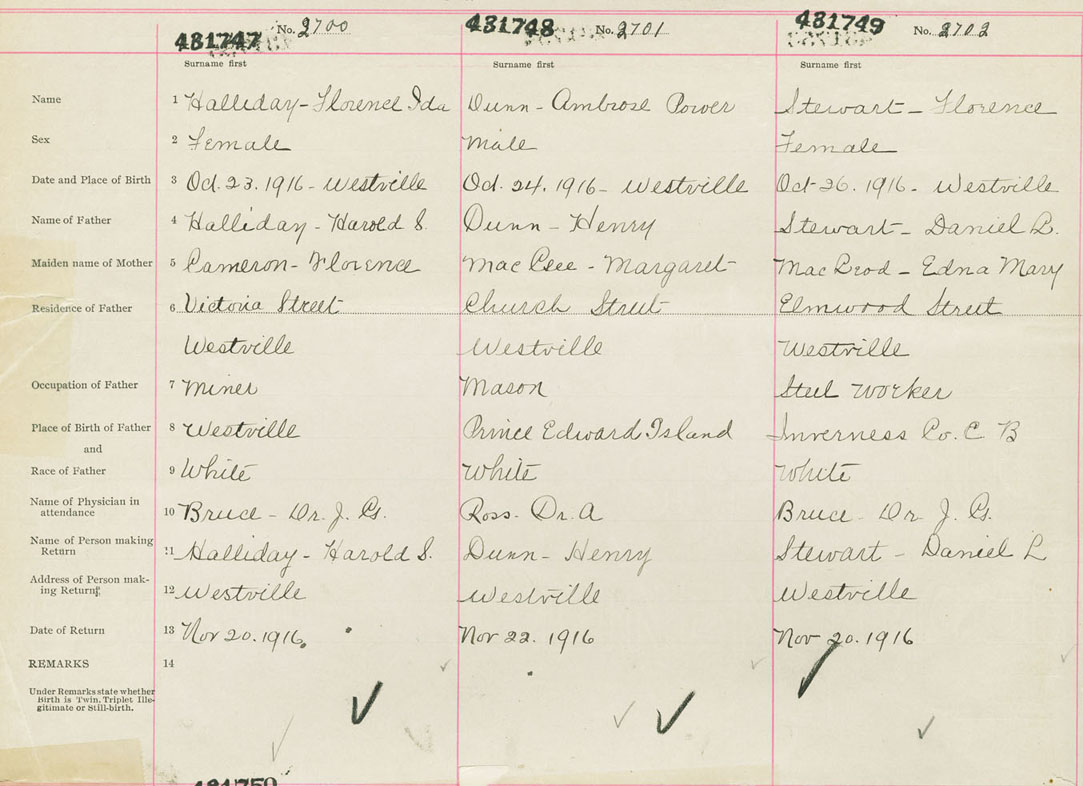 431747 No. 2700 431748 No. 2701 431749 No. 2702
Surname first Surname first Surname first
Name 1 Halliday - Florence Ida Dunn - Ambrose Power Stewart - Florence
Sex 2 Female Male Female
Date and Place of Birth 3 Oct. 23. 1916 - Westville Oct. 24. 1916 - Westville Oct 26. 1916 - Westville
Name of Father 4 Halliday - Harold S. Dunn - Henry Stewart - Daniel L.
Maiden name of Mother 5 Cameron - Florence Mac Gee - Margaret Mac Leod - Edna Mary
Residence of Father 6 Victoria Street Church Street Elmwood Street
Westville Westville Westville
Occupation of Father 7 Miner Mason Steel Worker
Place of Birth of Father 8 Westville Prince Edward Island Inverness Co. C B
and
Race of Father 9 White White White
Name of Physician in
attendance 10 Bruce - Dr. J. G. Ross - Dr. A Bruce - Dr J. G.
Name of Person making
Return 11 Halliday - Harold S. Dunn - Henry Stewart - Daniel L
Address of Person mak-
ing Return 12 Westville Westville Westville
Date of Return 13 Nov 20. 1916. Nov 22. 1916 Nov 20. 1916
REMARKS 14
Under Remarks state whether
Birth is Twin, Triplet Ille-
gitimate or Still-birth.
431750